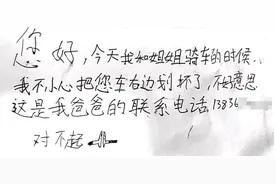 您好，今天我和姐姐骑车的时候，
我不小心把您车右边划坏了，不好意思
这是我爸爸的联系电话13836
对不起